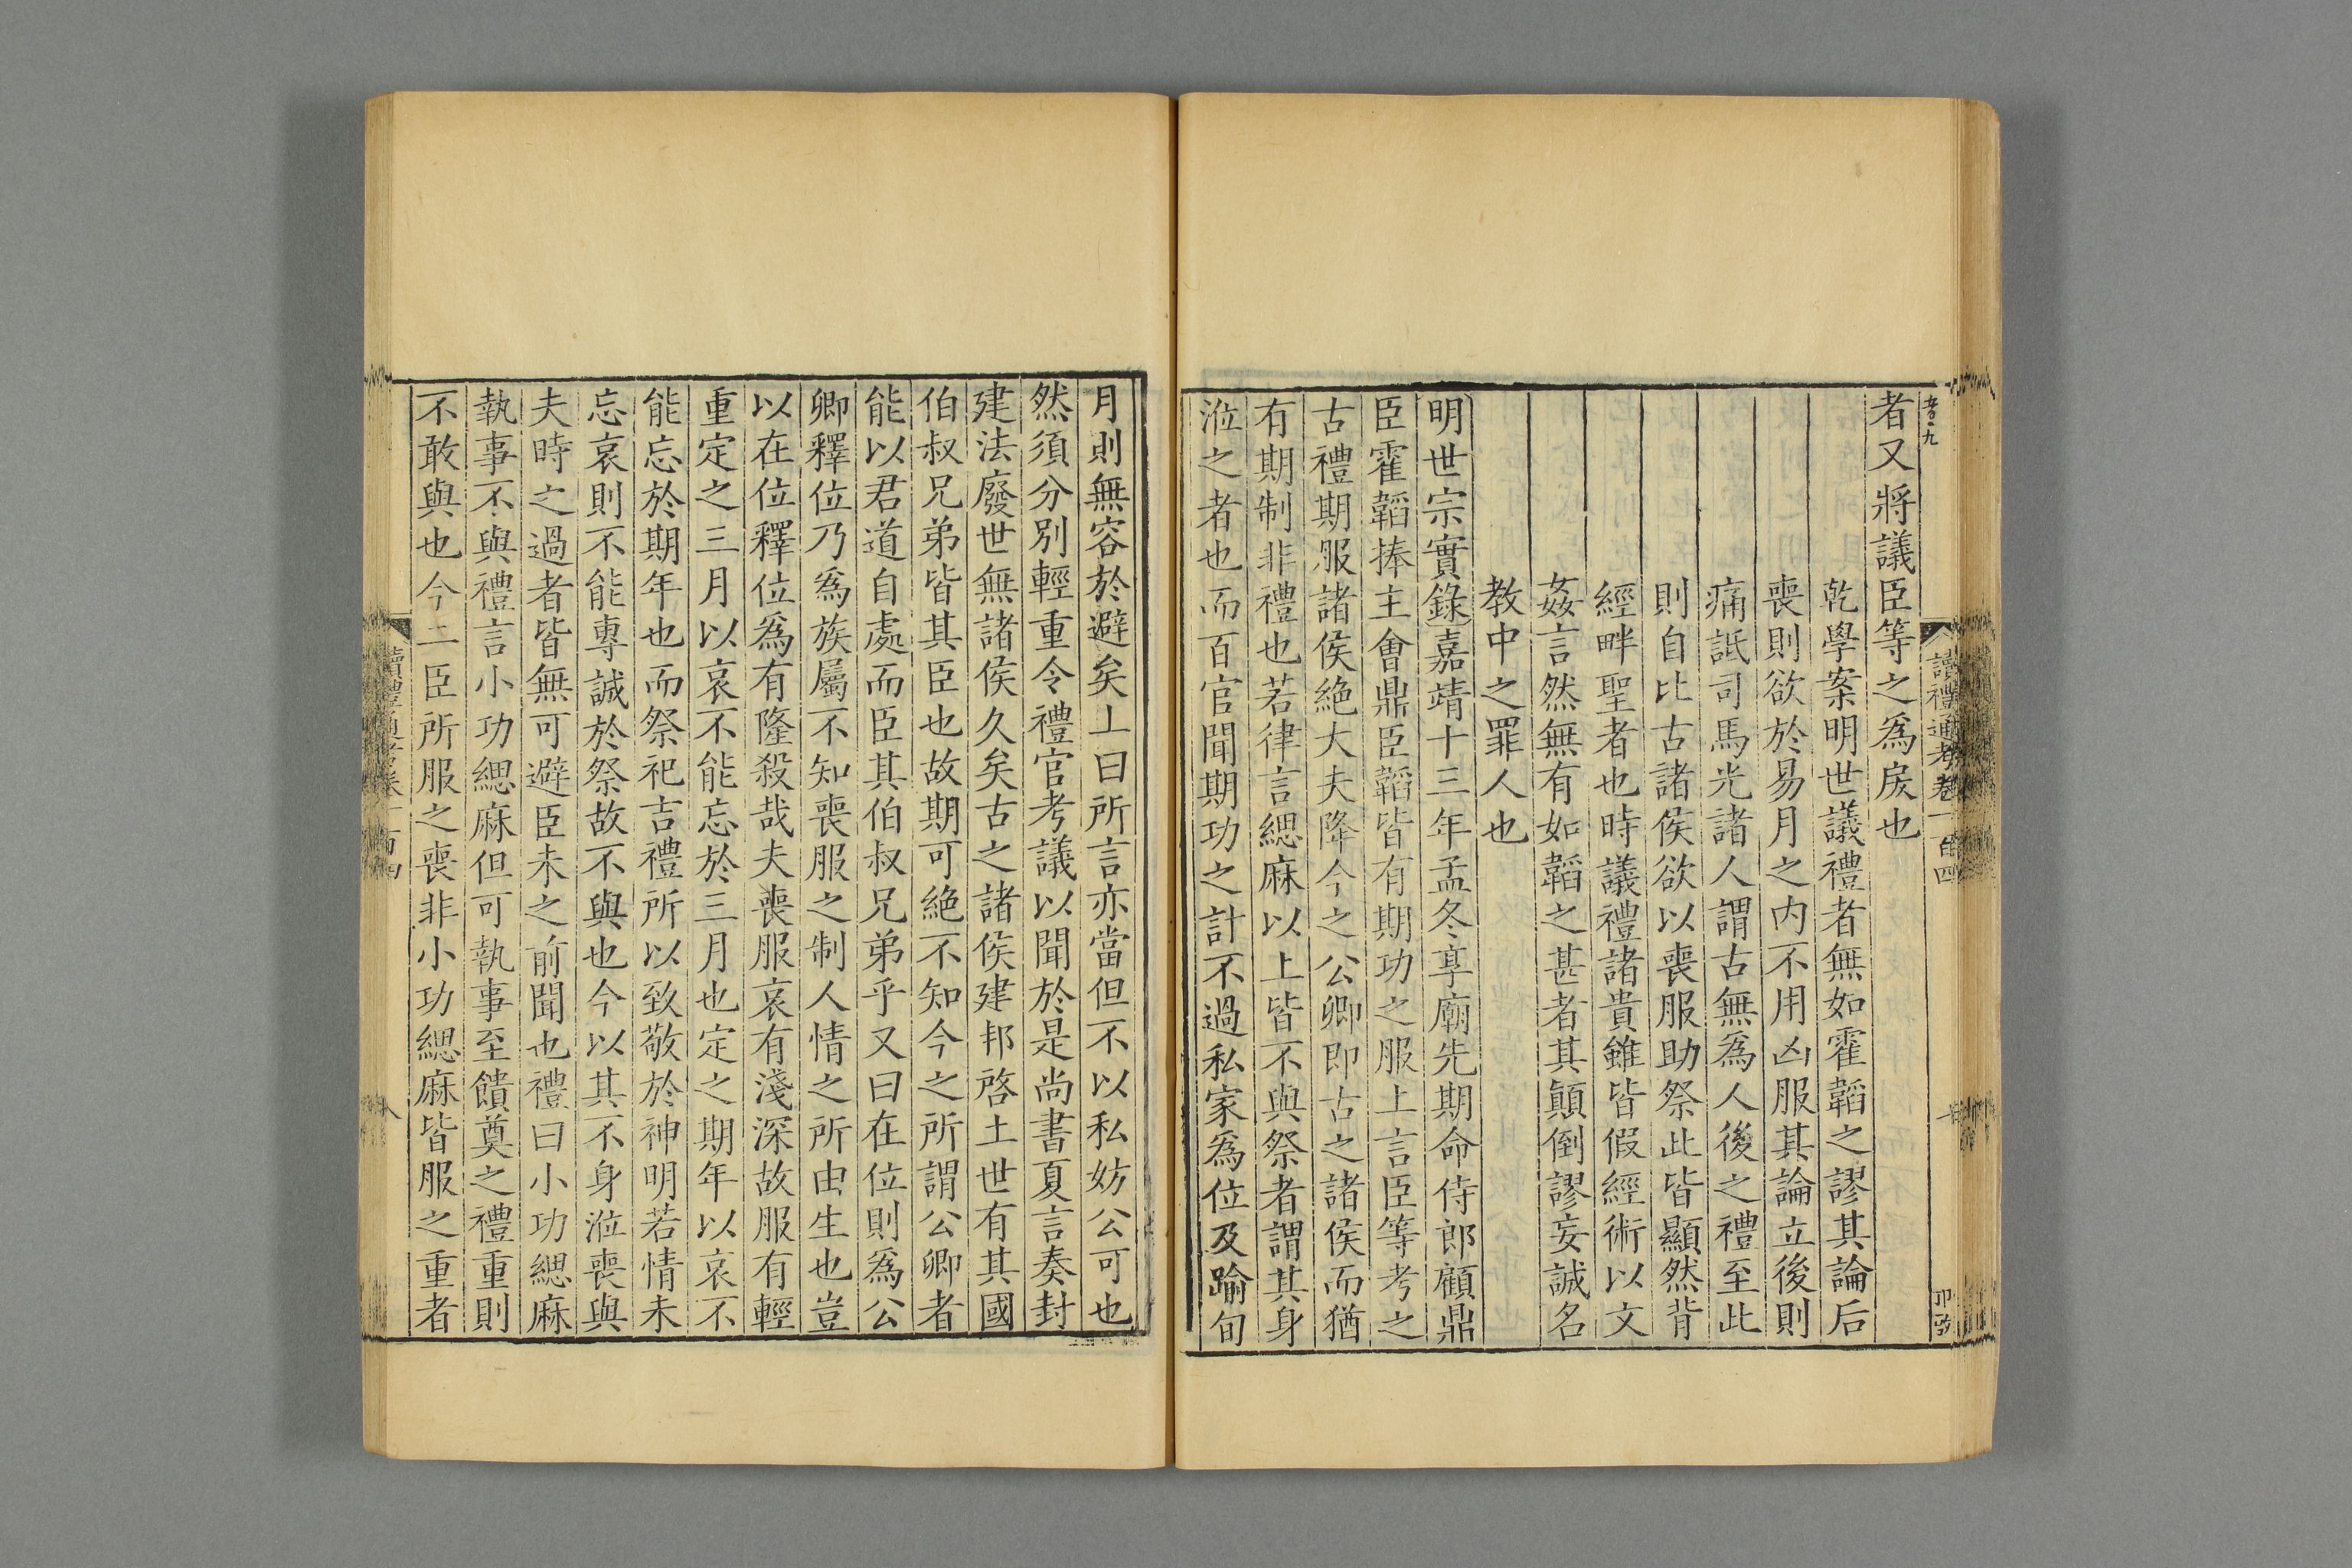 讀禮通考卷一百四
者又將議臣等之爲戾也
乾學案明世議禮者無如霍韜之謬其論后
喪則欲於易月之内不用凶服其論立後則
痛詆司馬光諸人謂古無爲人後之禮至此
則自比古諸侯欲以喪服助祭此皆顯然背
經畔聖者也時議禮諸貴雖皆假經術以文
姦言然無有如韜之甚者其顛倒謬妄誠名
教中之罪人也
明世宗實錄嘉靖十三年孟冬享廟先期命侍郎顧鼎
臣霍韜捧主會鼎臣韜皆有期功之服上言臣等考之
古禮期服諸侯絶大夫降今之公卿即古之諸侯而猶
有期制非禮也若律言緦麻以上皆不與祭者謂其身
涖之者也而百官聞期功之計不過私家爲位及踰旬
月則無容於避矣上曰所言亦當但不以私妨公可也
然須分別輕重令禮官考議以聞於是尚書夏言奏封
建法廢世無諸侯久矣古之諸侯建邦啓土世有其國
伯叔兄弟皆其臣也故期可絶不知今之所謂公卿者
能以君道自處而臣其伯叔兄弟乎又曰在位則爲公
卿釋位乃爲族屬不知喪服之制人情之所由生也豈
以在位釋位爲有隆殺哉夫喪服哀有淺深故服有輕
重定之三月以哀不能忘於三月也定之期年以哀不
能忘於期年也而祭祀吉禮所以致敬於神明若情未
忘哀則不能專誠於祭故不與也今以其不身涖喪與
夫時之過者皆無可避臣未之前聞也禮曰小功緦麻
執事不與禮言小功緦麻但可執事至饋奠之禮重則
不敢與也今二臣所服之喪非小功緦麻皆服之重者
八